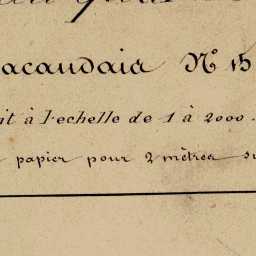 acaudais Nº 15
it à l'echelle de 1 à 2000.
papier pour 2 mètres su